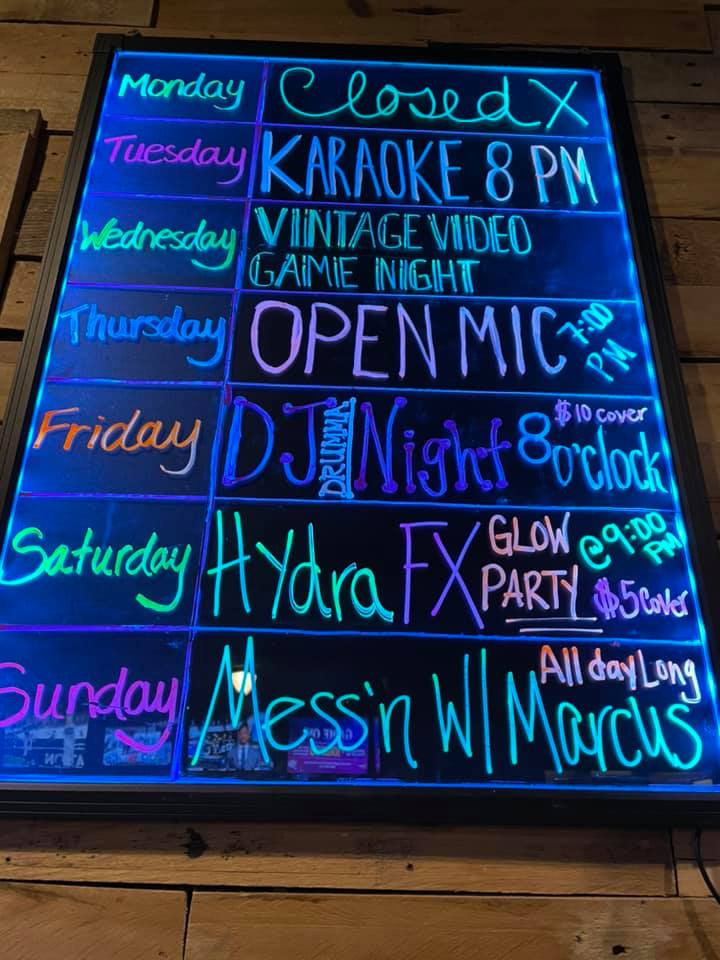 Monday Closed X
Tuesday KARAOKE 8 PM
Wednesday VINTAGE VIDEO
GAME NIGHT
Thursday OPEN MIC 7:00
PM
Friday DJ DRUMMA Night 8 o'clock
$10 cover
Saturday Hydra FX GLOW
PARTY @ 9:00
PM
$5 cover
Sunday Mess'n W/ Marcus
All day Long